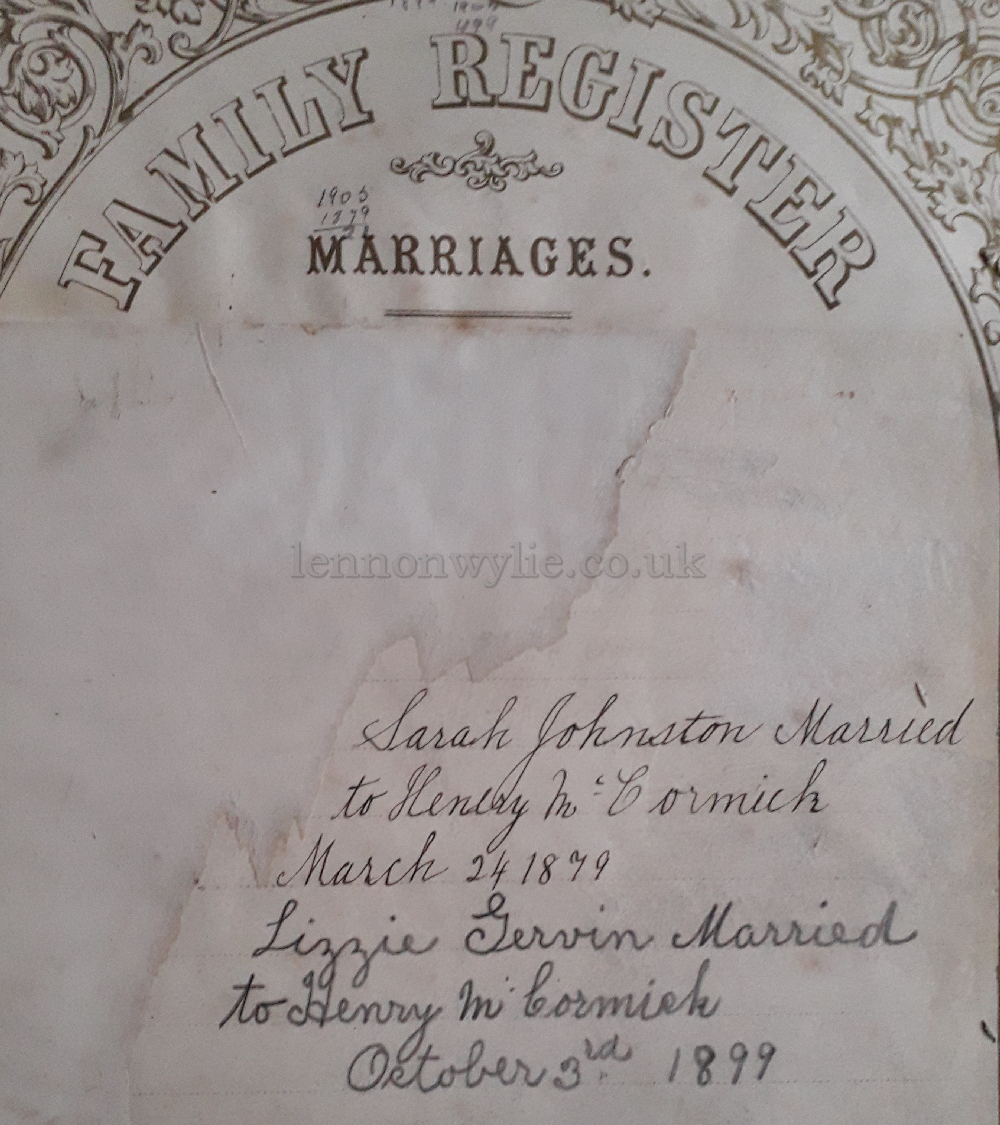 FAMILY REGISTER
1905
1879
MARRIAGES.
lennonwylie.co.uk
Sarah Johnston Married
to Henery Mc Cormick
March 24 1879
Lizzie Gervin Married
to Henry Mc Cormick
October 3rd 1899